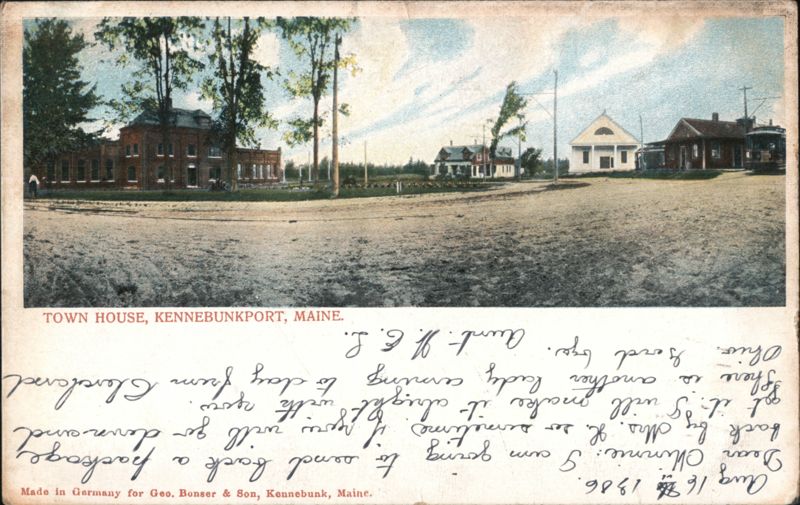 TOWN HOUSE, KENNEBUNKPORT, MAINE.
Aug 16
Dear Minnie: I am going to send back a package
back by Mrs. H. so sometime if you will go down and
get it. I will make it alright with you.
There is another lady coming to day from Cleveland
Ohio. Good bye.
Aunt H. E. L.
Made in Germany for Geo. Bonser & Son, Kennebunk, Maine.